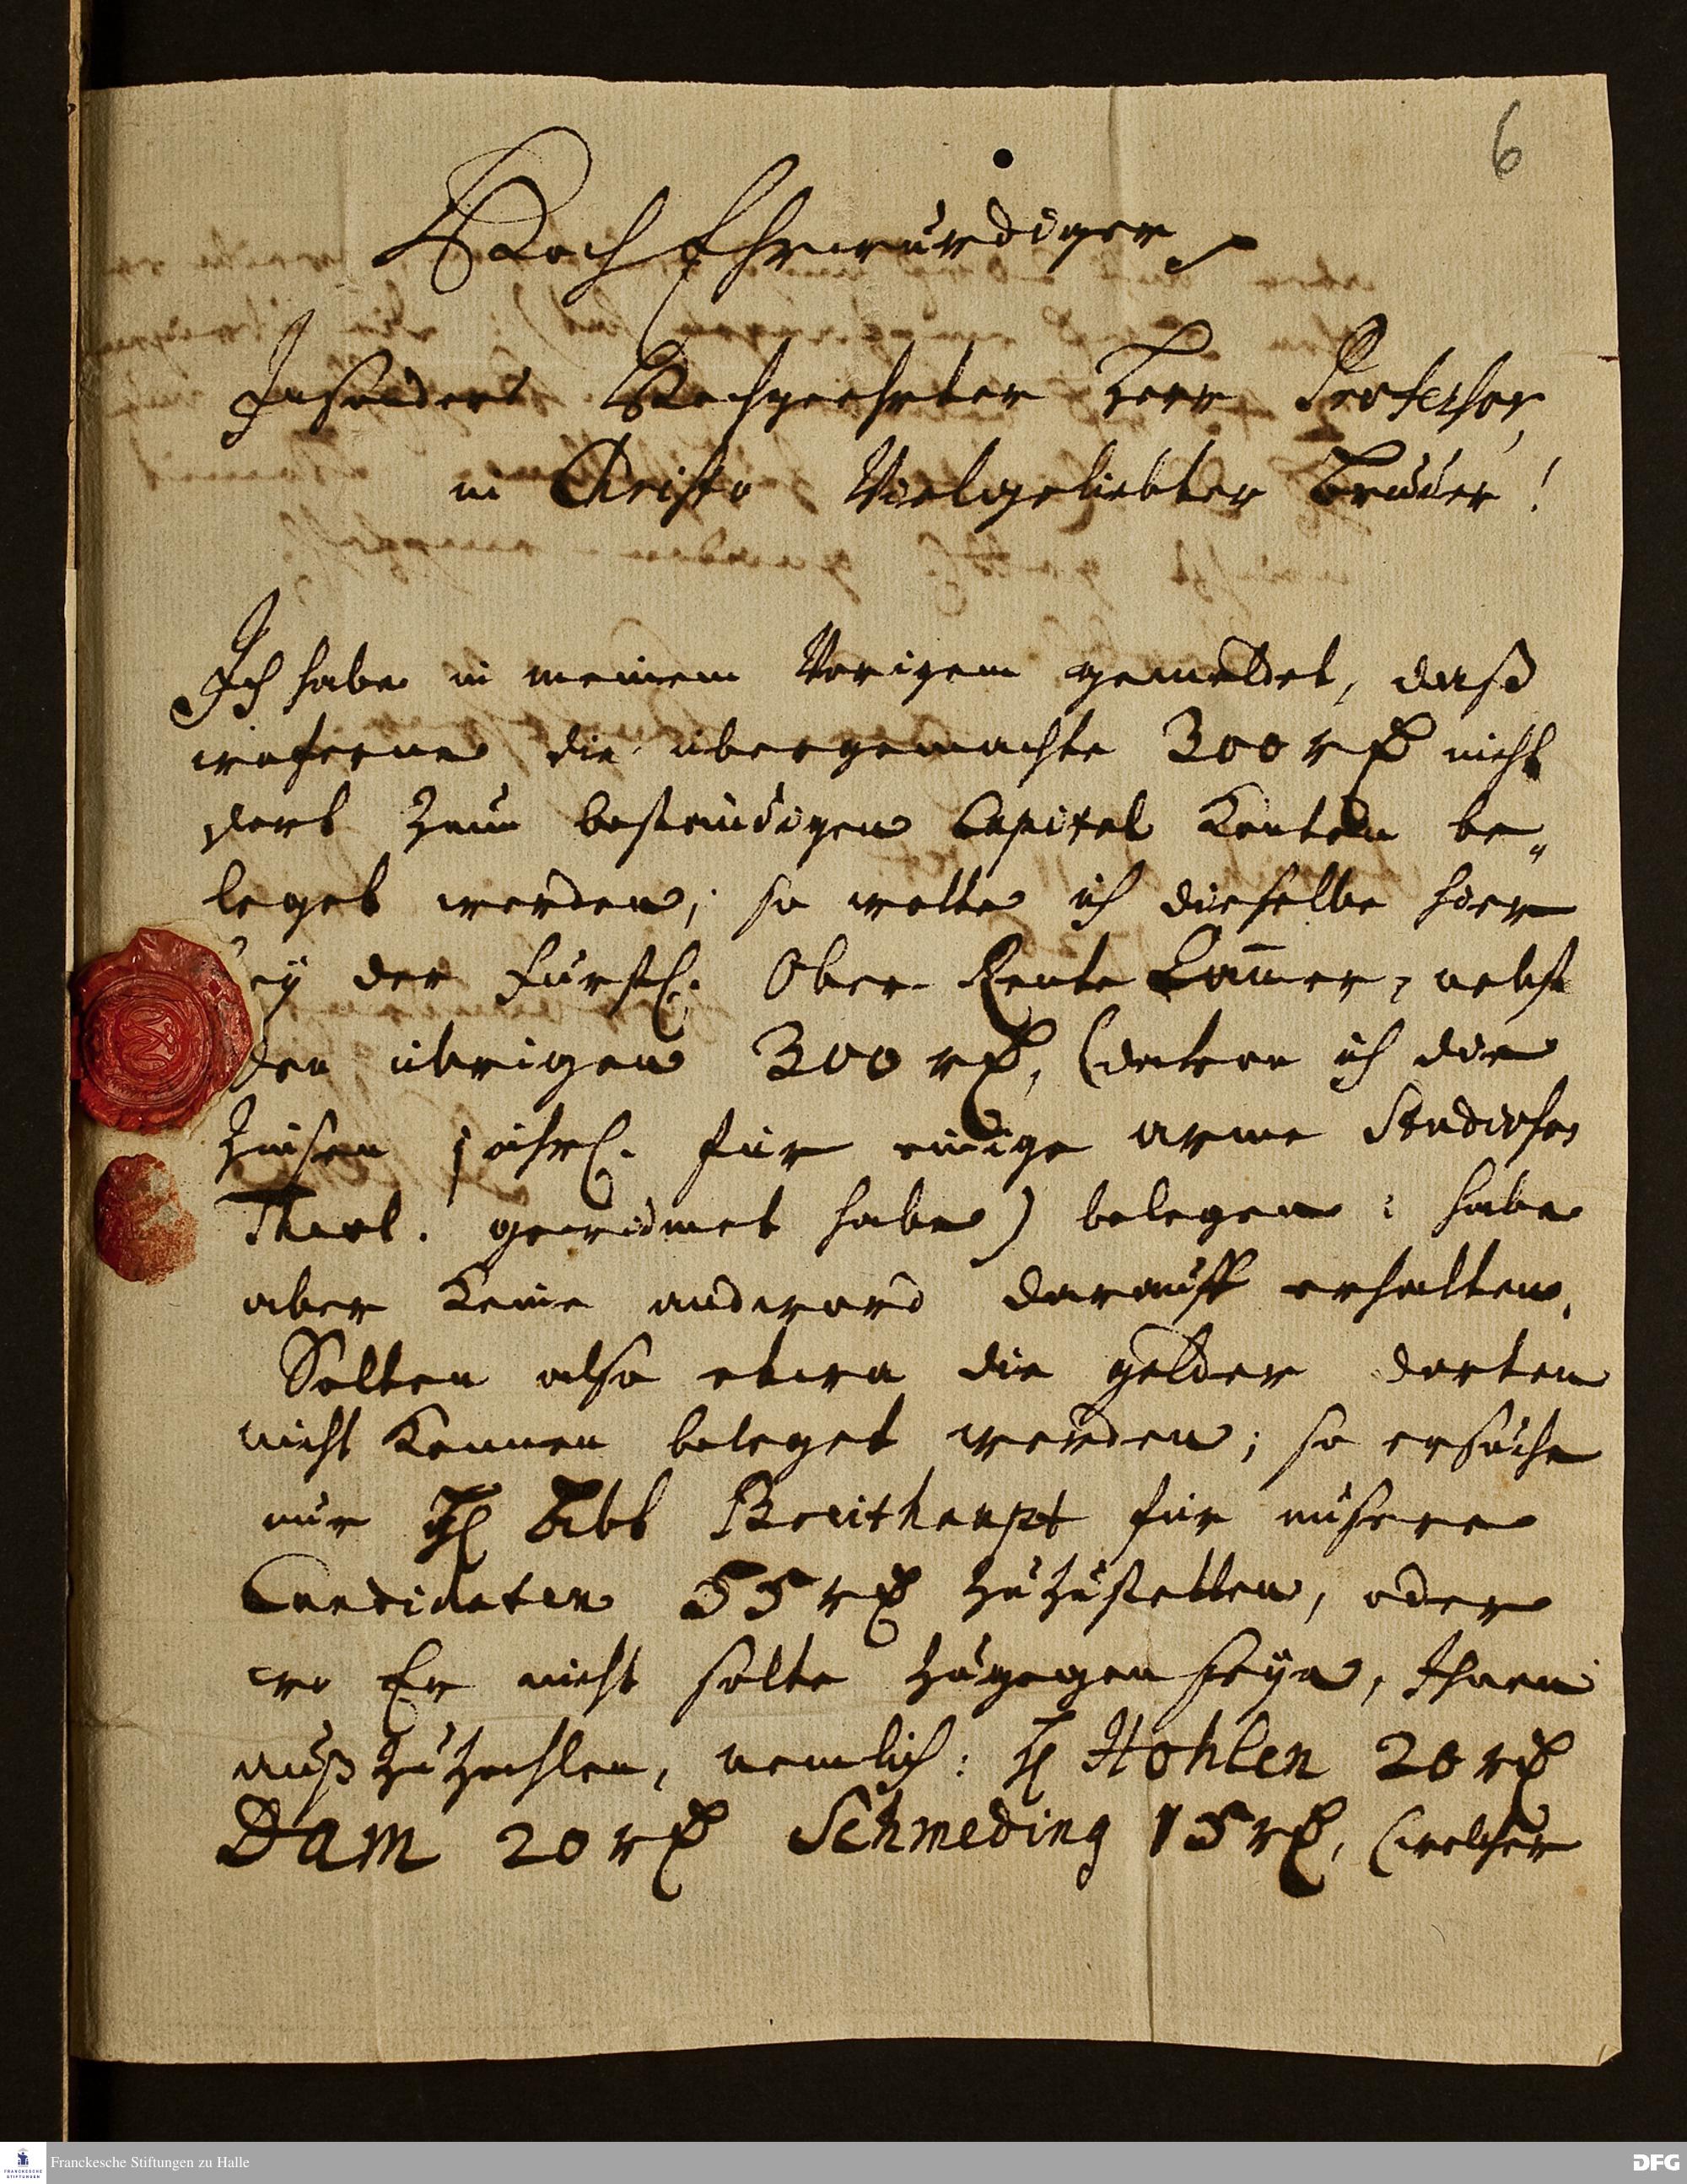 6
HochEhrwürdiger,
Insonders Hochgeehrter Herr Professor,
in Christo Vielgeliebter Bruder!
Ich habe in meinem Vorigem gemeldet, daß
woferne die übergemachte 300 rth nicht
dort zum beständigen Capital konten be„
leget werden; so wolte ich dieselbe hier
bey der Fürstl. Ober Rente Cammer, nebst
den übrigen 300 rth, (davon ich die
Zinsen jährl. für einige arme Studiosos
Theol. gewidmet habe) belegen: habe
aber keine andword darauff erhalten.
Solten also etwa die gelder dorten
nicht können beleget werden; so ersuche
nur H Abt Breithaupt für unsere
Candidaten 55 rth zuzustellen, oder
wo Er nicht solte zugegen seyn, Ihnen
außzuzehlen, nemlich: H Hohlen 20 rth
Dam 20 rth Schmeding 15 rth, (welcher
Franckesche Stiftungen zu Halle
DFG